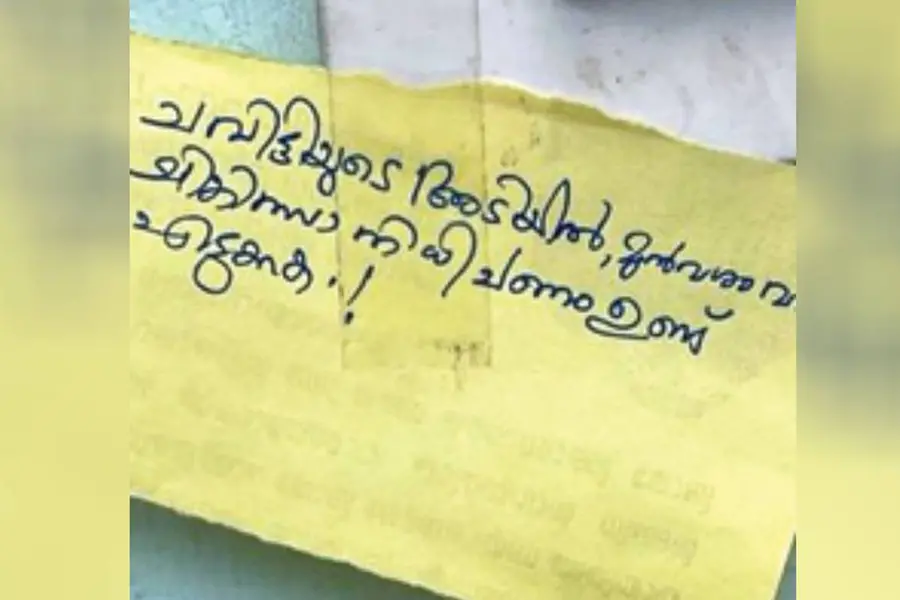 ചവിട്ടിയുടെ അടിയിൽ, മുൻവശം
ചികിത്സാ നിധി പണം ഉണ്ട്
എടുക്കുക.!